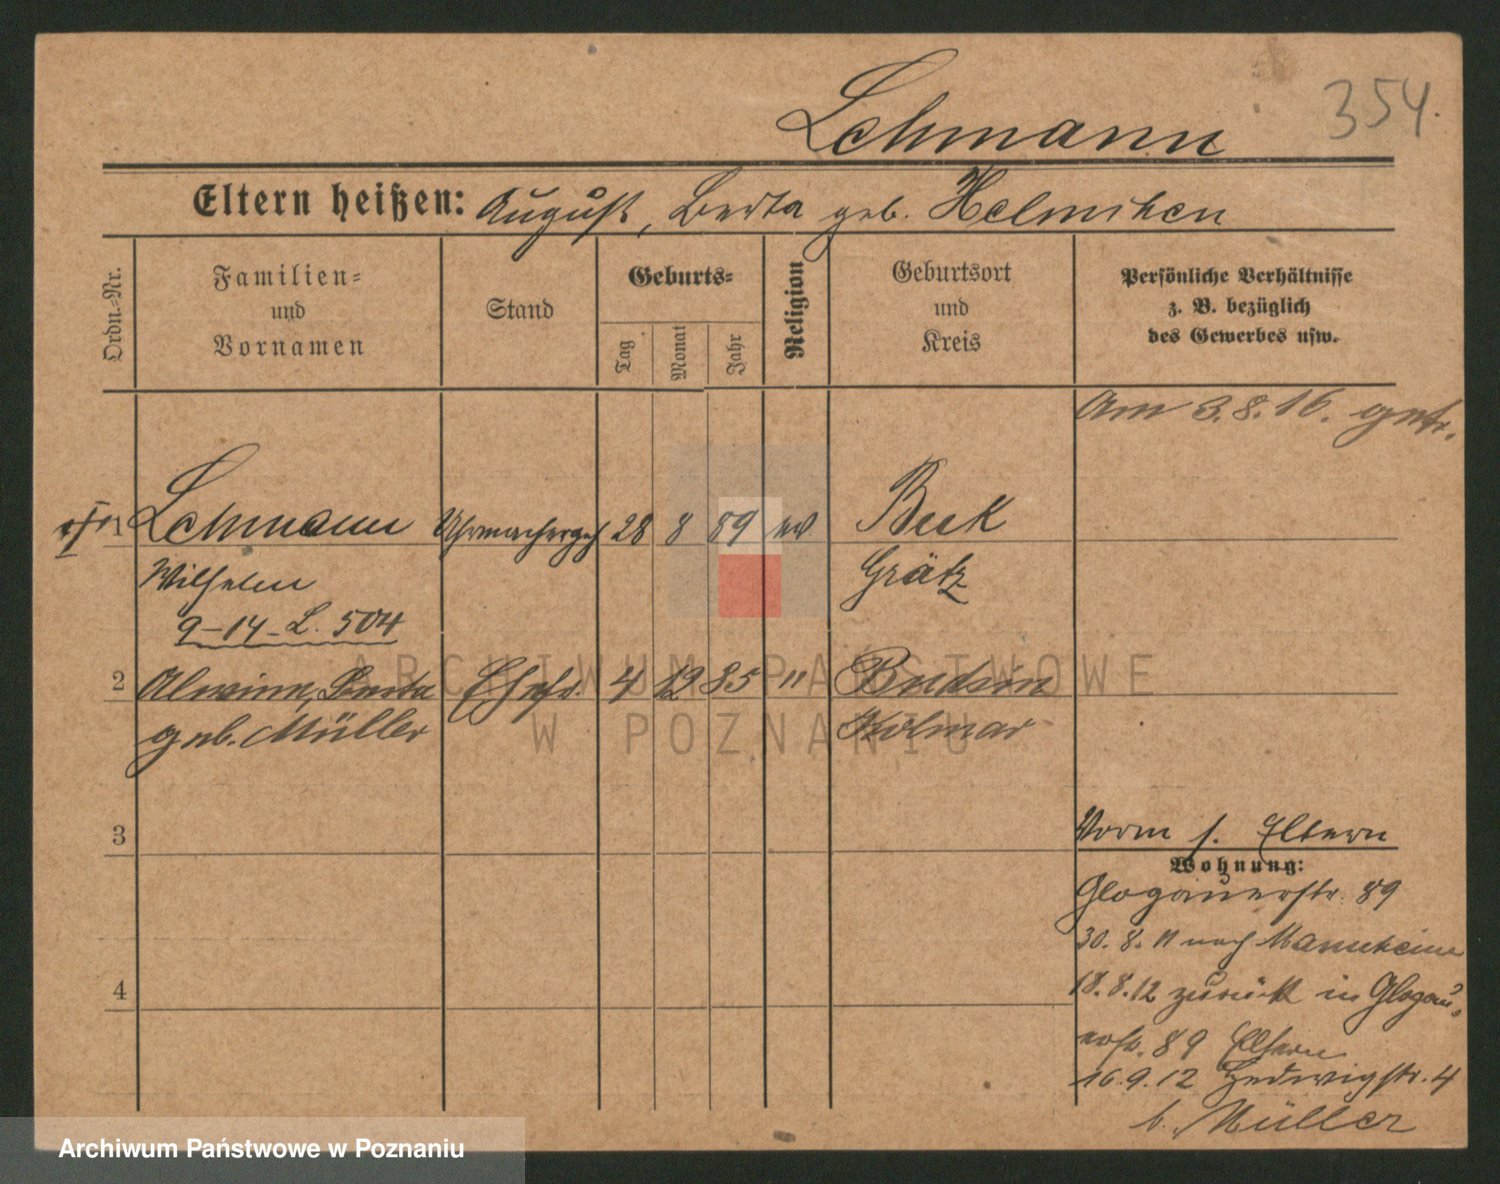 354.
Lehmann
Eltern heißen: August, Berta geb. Helmchen
Ordn.-Nr.
Familien- und Vornamen
Stand
Geburts-
Tag
Monat
Jahr
Religion
Geburtsort und Kreis
Persönliche Verhältnisse z. B. bezüglich des Gewerbes usw.
Am 3.8.16. getr.
1 Lehmann Uhrmachergeh 28 8 89 ev. Buk
Wilhelm Grätz
9-14- L. 504
2 Alwine, Berta Ehefr. 4 12 85 " Budsin
geb. Müller Kolmar
3
4
Vorm s. Eltern
Wohnung:
Glogauerstr. 89
30. 8. 11 nach Mannheim
18.8.12 zurück in Glogau-
erstr. 89 Eltern
16.9.12 Hedwigstr. 4
b. Müller
ARCHIWUM PAŃSTWOWE
W POZNANIU
Archiwum Państwowe w Poznaniu